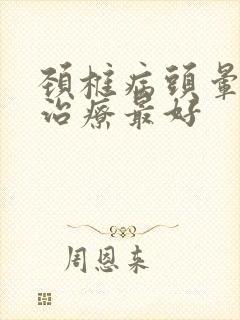 頚椎病頭暈
治療最好
周恩来